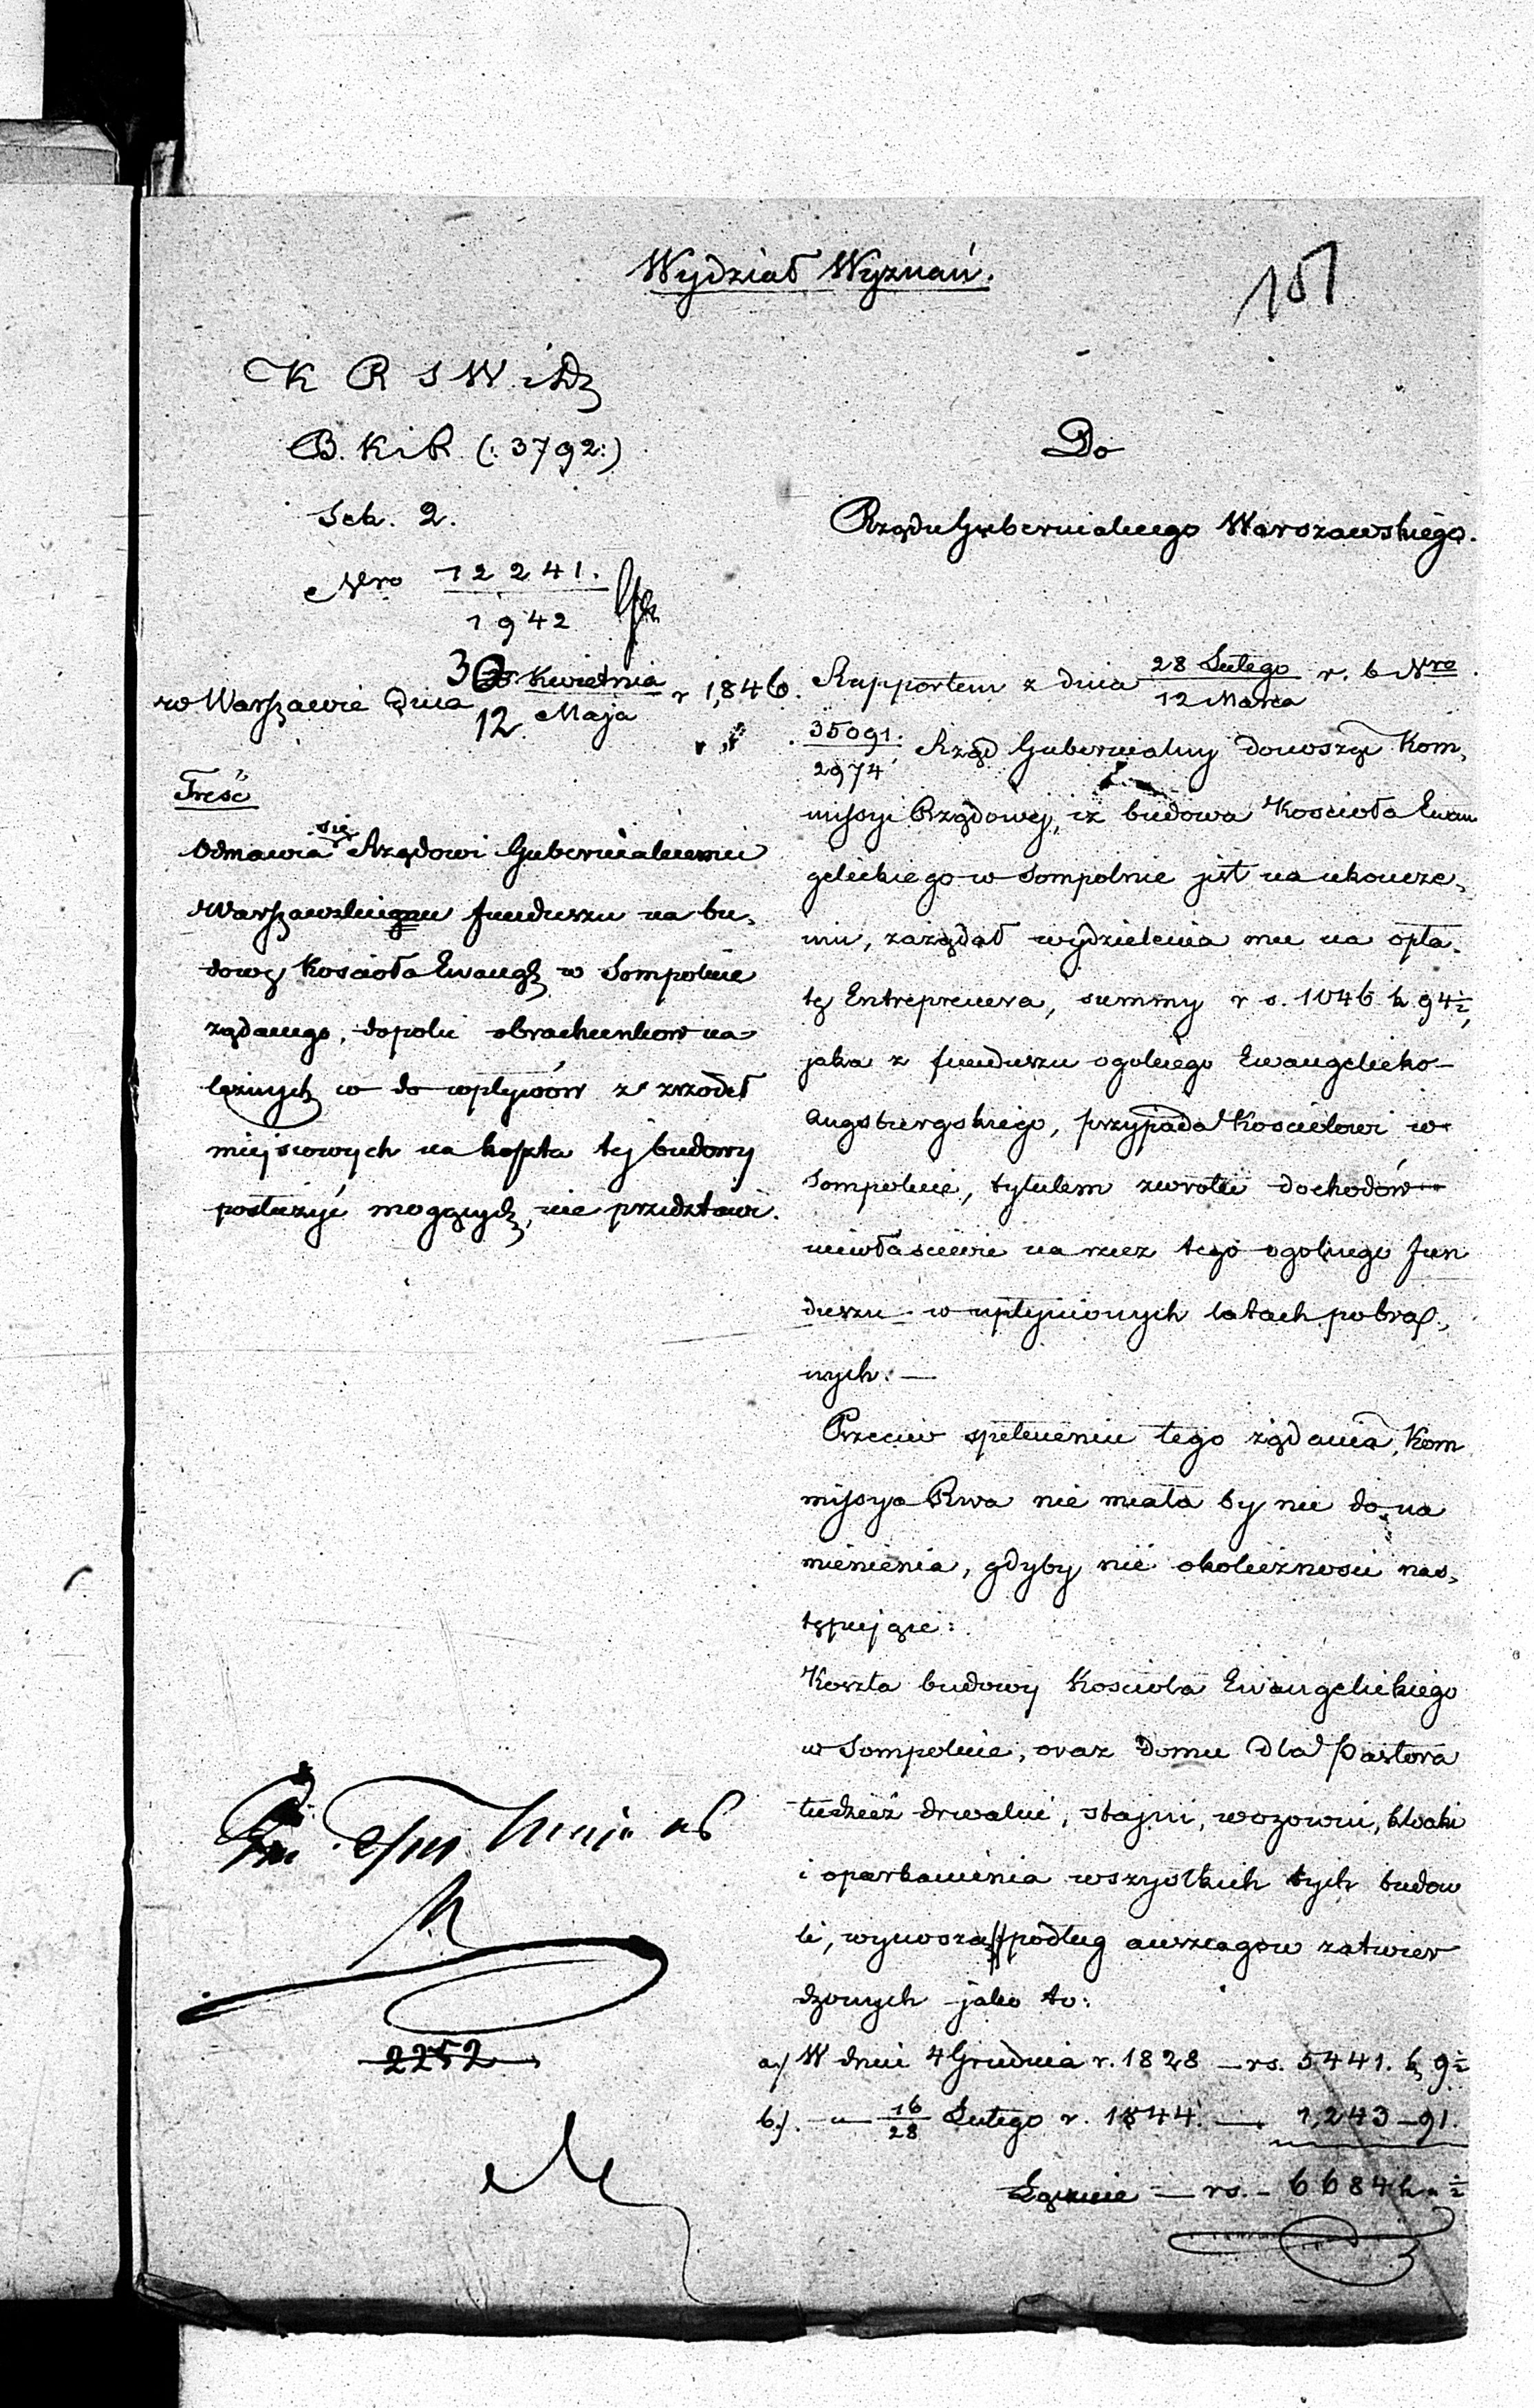 Wydział Wyznań.
151
K R S W i D
B. K i R. (: 3792:)
Sek. 2.
Nro 12241.
1942
w Warszawie dnia 30 Kwietnia r 1,846.
12 Maja
Treść
Odmawia się Rządowi Gubernialnemu
Warszawskiegmu funduszu na bu,
dowę Kościoła Ewang w Sompolnie
żądanego, dopoki obrachunkow na-
leżnych w do wpływów z zrzodeł
miejscowych na koszta tej budowy
posłużyć mogących, nie przedstawi.
2252
Do
Rządu Gubernialnego Warszawskiego.
Rapportem z dnia 28 Lutego r. b Nro
12 Marca
35091.
2974
Rząd Gubernialny donosząc Kom,
missyi Rządowej, iż budowa Kościoła Ewan
gelickiego w Sompolnie jest na ukoncze,
niu, zażądał wydzielenia mu na opła,
tę Entreprenera, summy r s. 1046 k 94½,
jaka z funduszu ogolnego Ewangelicko-
Augsburgskiego, przypada Kościołowi w
Sompolnie, tytułem zwrotu dochodów
niewłaściwie na rzecz tego ogolnego fun
duszu w upłynionych latach pobra,
nych. —
Przeciw spełnieniu tego żądania, Kom
missya Rwa nie miała by nic do na
mienienia, gdyby nie okoliczności nas,
tępujące:
Koszta budowy Kościoła Ewangelickiego
w Sompolnie, oraz domu dla Pastora
tudzież drwalni, stajni, wozowni, kloaki
i oparkanienia wszystkich tych budow
li, wynoszą podług anszlagow zatwier
dzonych jako to:
a./ W dniu 4 Grudnia r. 1828 — rs. 5441. k 9½
b./. — „ — 16/28 Lutego r. 1844. — 1,243 — 91.
Łącznie — rs. — 6684 k „ ½